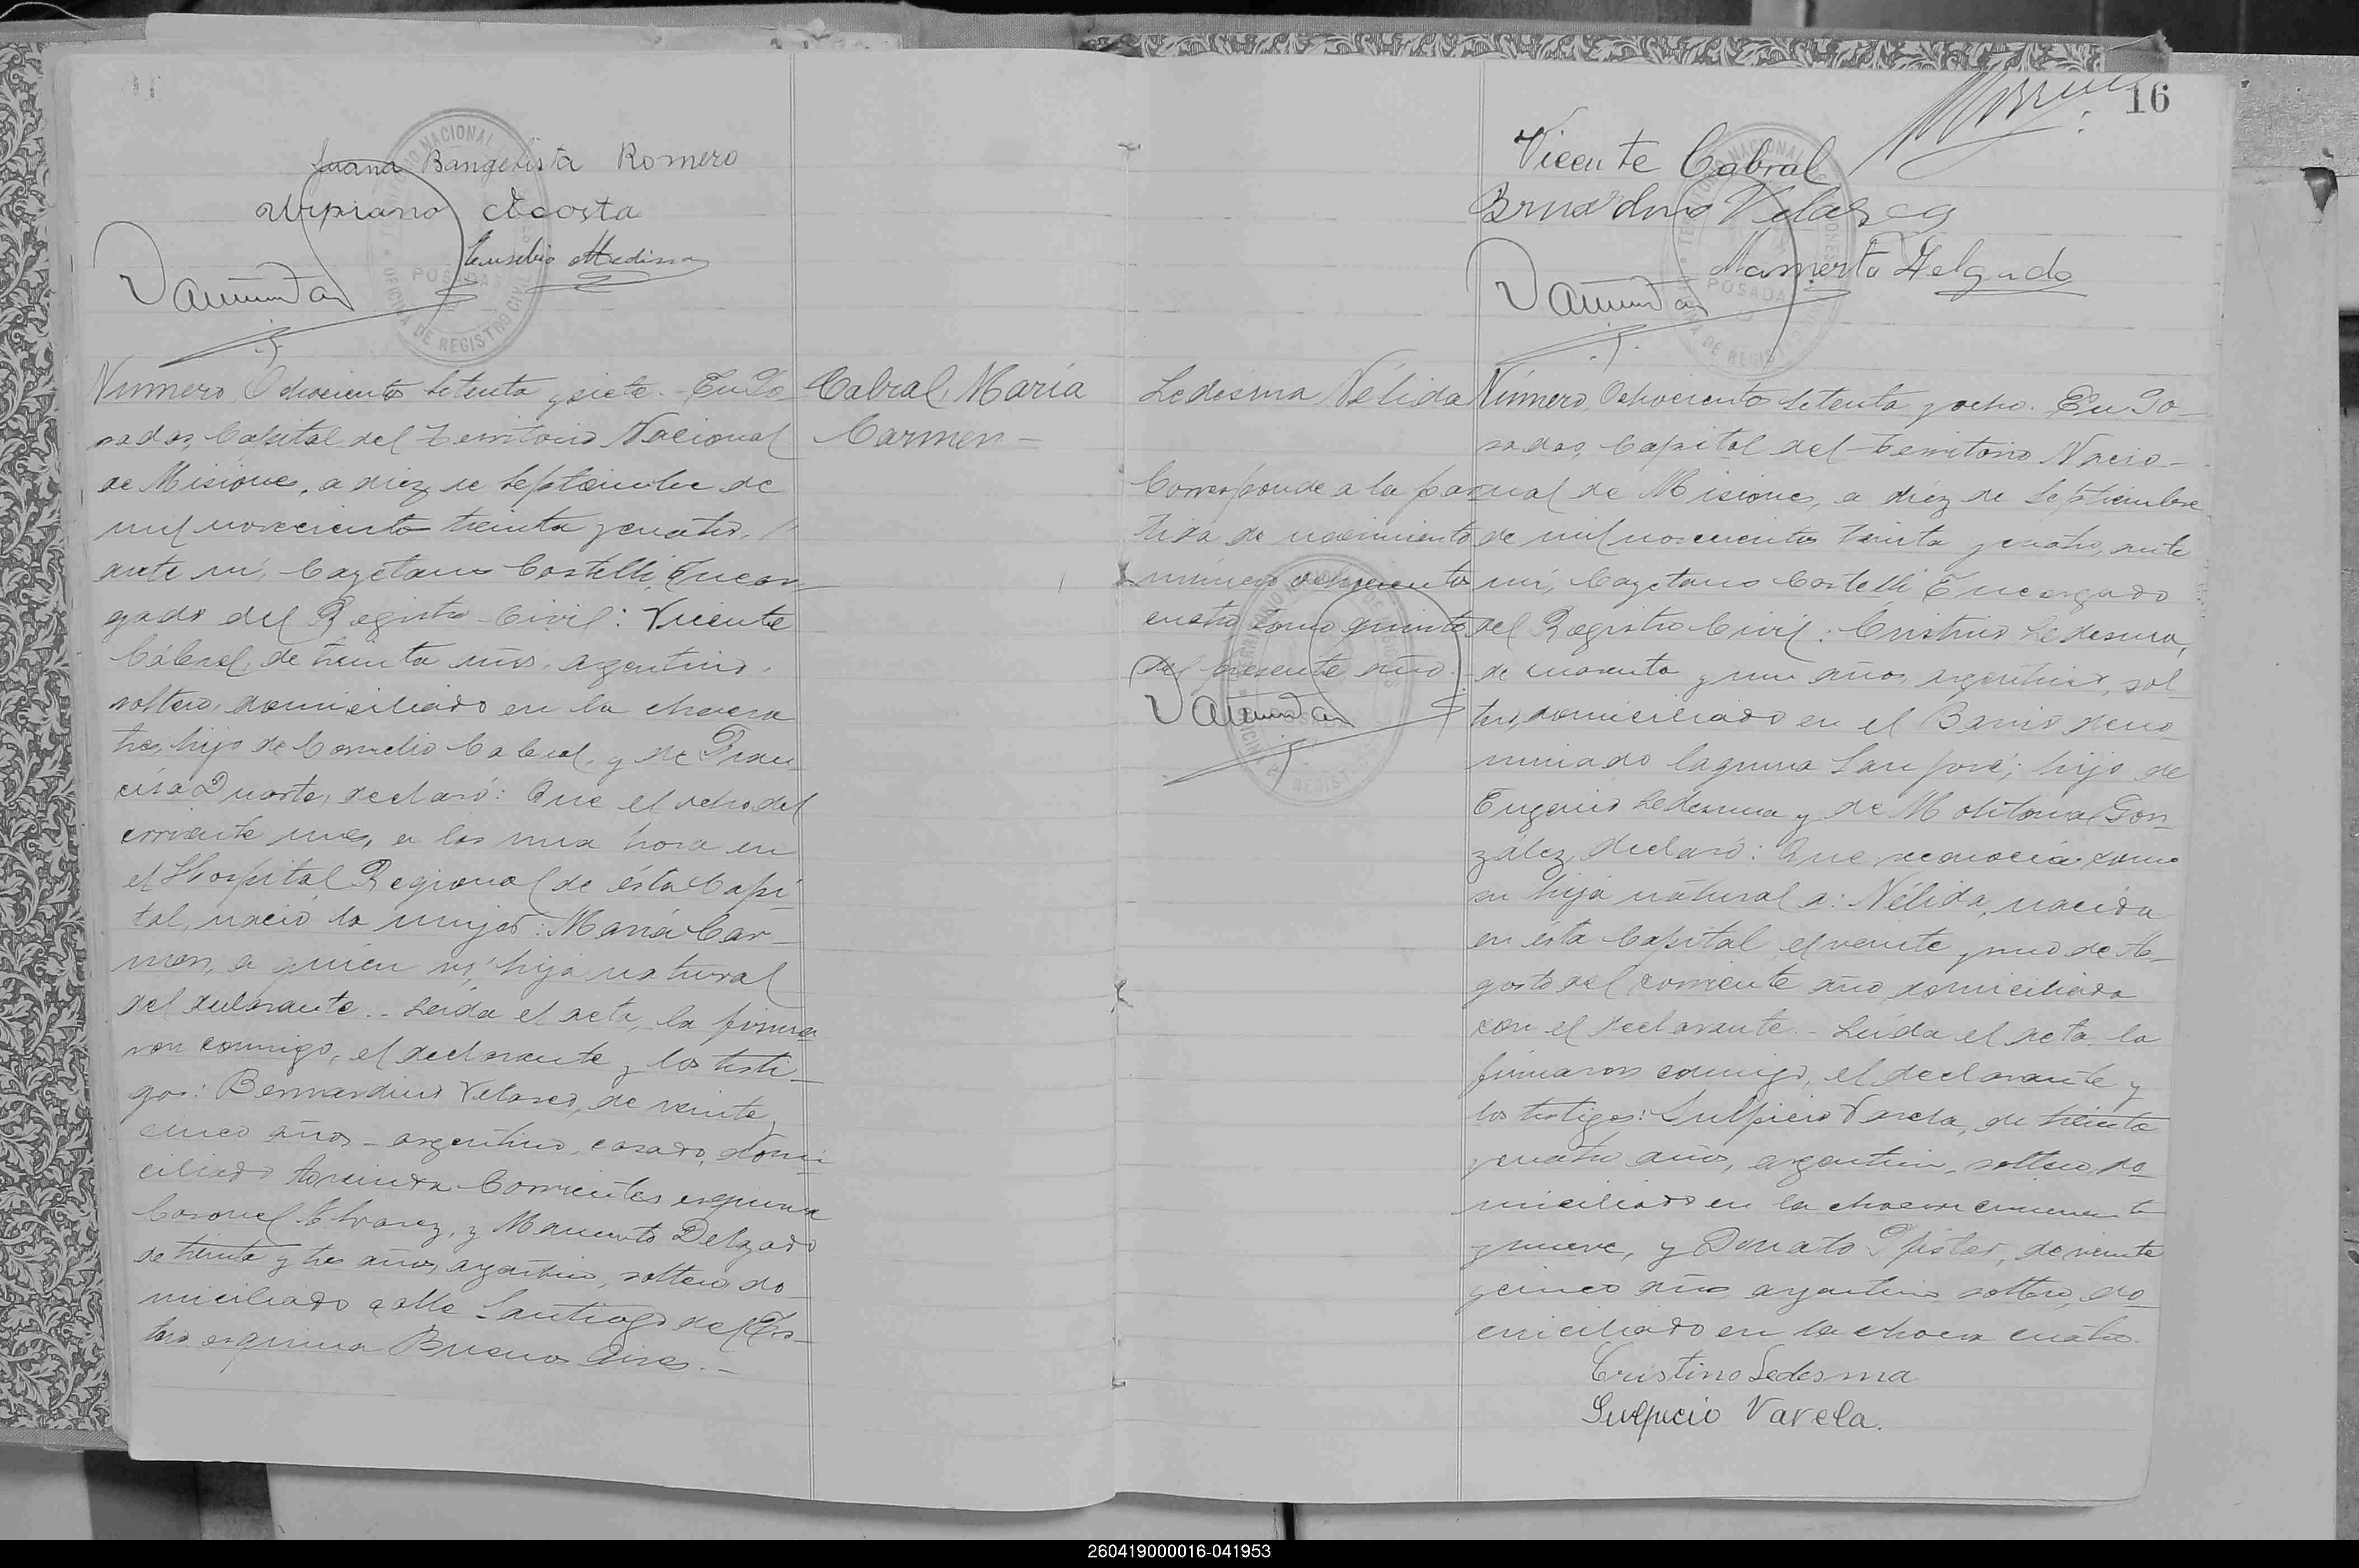 Juana Bangelista Romero
Urpiano Acosta
Eusebio Medina
Número Ochociento setenta y siete.- En Po
sadas, Capital del Territorio Nacional
de Misiones, a diez de Septiembre de
mil novecientos treinta y cuatro,
ante mí, Cayetano Castelli, Encar
gado del Registro Civil: Vicente
Cabral, de treinta años, argentino,
soltero, domiciliado en la chacra
tres, hijo de Cornelio Cabral, y de Fran
cisa Duarte, declaró: Que el ocho del
corriente mes, a las una hora en
el Hospital Regional de ésta Capi
tal, nació la mujer: María Car-
men, a quien vi, hija natural
del declarante.- Leída el acta, la firma
ron conmigo, el declarante y los testi-
gos: Bernardino Velasco, de veinte
cinco años - argentino, casado, domi
ciliado Avenida Corrientes esquina
Coronel Alvarez, y Mamerto Delgado
de treinta y tres años, argentino, soltero do
miciliado calle Santiago del Es-
tero esquina Buenos Aires.-
Cabral, María
Carmen-
16
Vicente Cabral
Bernardino Velasco
Mamerto Delgado
Ledesma Nélida
Corresponde a la par
tida de nacimiento
número ochociento
cuatro, tomo quinto
del presente año.
Número Ochociento setenta y ocho. En Po-
sadas, Capital del Territorio Nacio-
nal de Misiones, a diez de Septiembre
de mil novecientos treinta y cuatro, ante
mí, Cayetano Castelli Encargado
del Registro Civil: Cristino Ledesma,
de cuarenta y un años, argentino, sol
tero, domiciliado en el Barrio deno
minado laguna San José; hijo de
Eugenio Ledesma y de Gon
zález, declaró: Que reconocía como
su hija natural a: Nélida, nacida
en ésta Capital, el veinte y uno de A-
gosto del corriente año, domiciliada
con el declarante.- Leída el acta, la
firmaron conmigo, el declarante y
los testigos: Sulpicio Varela, de treinta
y cuatro años, argentino, soltero do-
miciliado en la chacra cincuenta
y nueve, y Donato Pfister, de veinte
y cinco años argentino soltero, do-
miciliado en la chacra cuatro.
Cristino Ledesma
Sulpicio Varela.
260419000016-041953